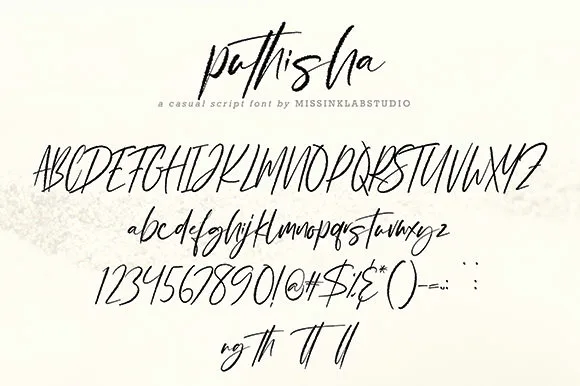 puthisha
a casual script font by MISSINKLABSTUDIO
ABCDEFGHIJKLMNOPQRSTUVWXYZ
abcdefghijklmnopqrstuvwxyz
1234567890!@#$%&*()-=
ng th tt ll